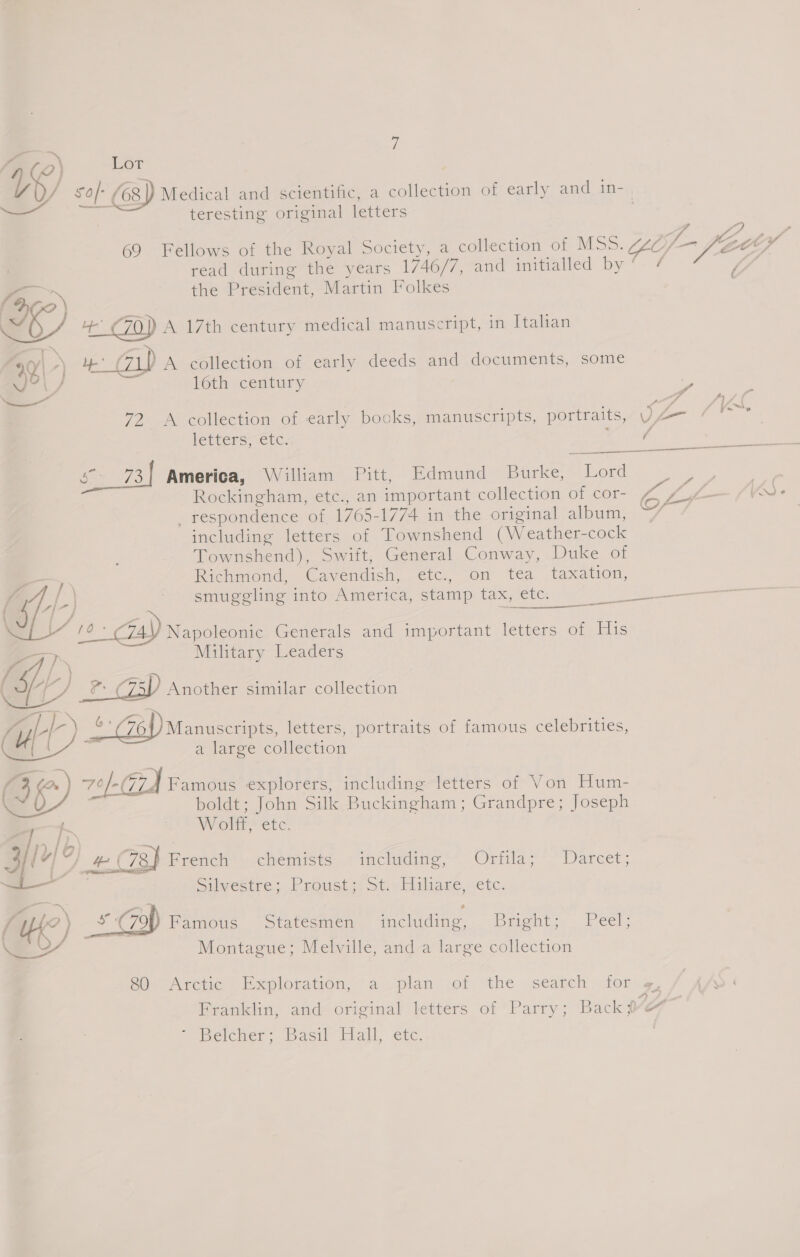 7
Lot
50/- 68 Medical and scientific, a collection of early and in-
teresting original letters
69 Fellows of the Royal Society, a collection of MSS.
read during the years 1746/7, and initialled by
the President, Martin Folkes
70 A 17th century medical manuscript, in Italian
71 A collection of early deeds and documents, some
16th century
72 A collection of early books, manuscripts, portraits,
letters, etc.
73 America, William Pitt, Edmund Burke, Lord
Rockingham, etc., an important collection of cor-
respondence of 1765-1774 in the original album,
including letters of Townshend (Weather-cock
Townshend), Swift, General Conway, Duke of
Richmond, Cavendish, etc., on tea taxation,
smuggling into America, stamp tax, etc.
74 Napoleonic Generals and important letters of His
Military Leaders
75 Another similar collection
76 Manuscripts, letters, portraits of famous celebrities,
a large collection
70/- 77 Famous explorers, including letters of Von Hum-
boldt; John Silk Buckingham; Grandpre; Joseph
Wolff, etc.
78 French chemists including, Orfila; Darcet;
Silvestre; Proust; St. Hiliare, etc.
79 Famous Statesmen including, Bright; Peel;
Montague; Melville, and a large collection
80 Arctic Exploration, a plan of the search for
Franklin, and original letters of Parry; Back;
Belcher; Basil Hall, etc.